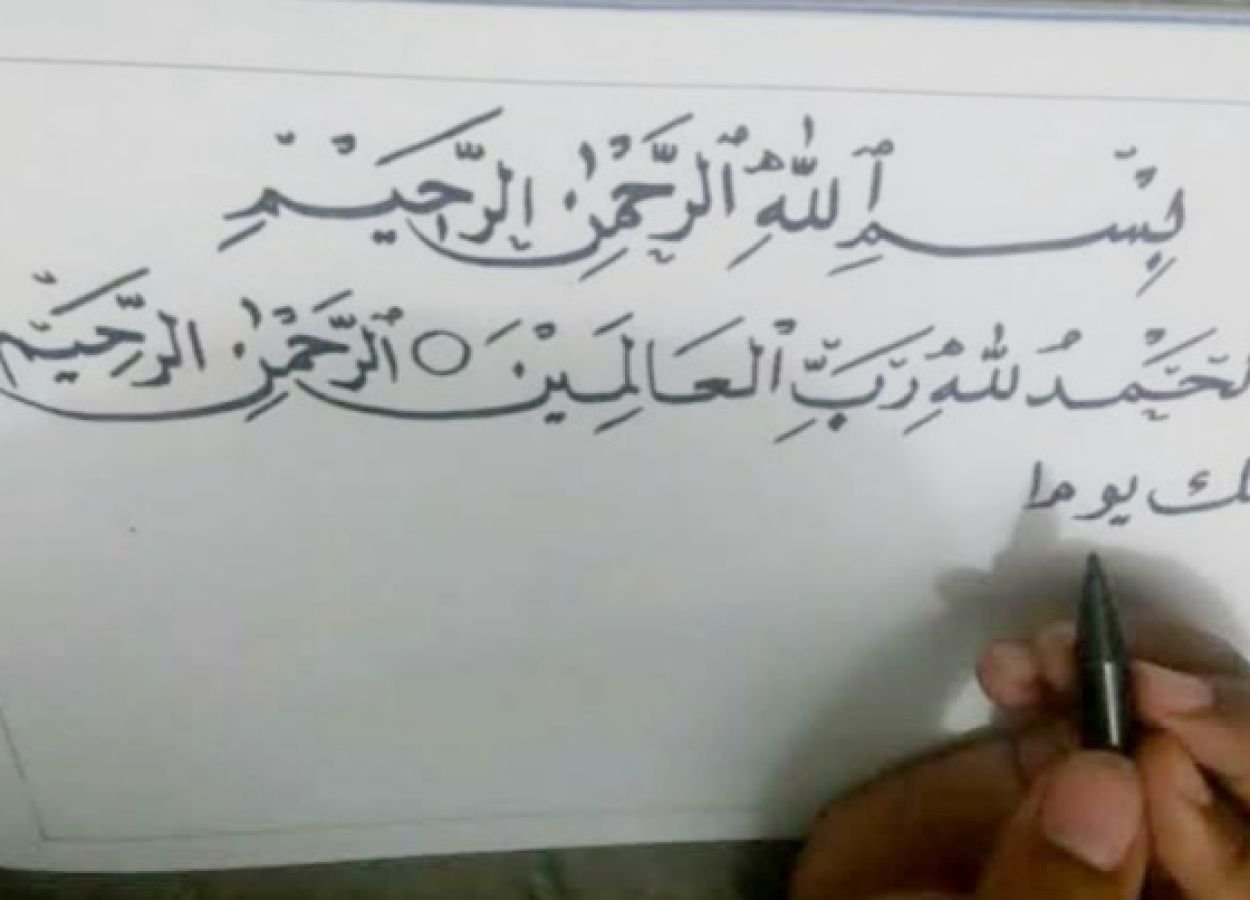 بِسْمِ ٱللّٰهِ ٱلرَّحْمٰنِ الرَّحِيْمِ
لحَمْدُ لِلّٰهِ رَبِّ ٱلْعَالَمِيْنَ ○ ٱلرَّحْمٰنِ الرَّحِيْمِ
لك يوم ا